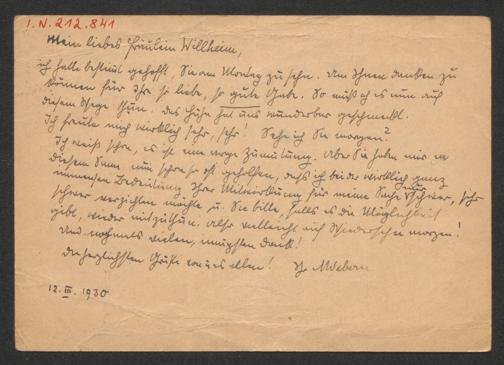 I.N. 212.841
Mein liebes Fräulein Willheim,
ich hatte bestimmt gehofft, Sie am Montag zu sehn. Um Ihnen danken zu
können für Ihre so liebe, so gute Gabe. So muß ich es nun auf
diesem Wege thun. Das Huhn hat uns wunderbar geschmeckt.
Ich freute mich wirklich sehr, sehr! Sehe ich Sie morgen?
Ich weiß schon, es ist eine arge Zumutung. Aber Sie haben mir in
diesem Sinne nun schon so oft geholfen, daß ich bei der wirklich ganz
immensen Bedeutung Ihrer Mitwirkung für meine Sache nur schwer, sehr
schwer verzichten möchte u. Sie bitte, falls es die Möglichkeit
gibt, wieder mitzuthun. Also vielleicht auf Wiedersehn morgen!
Und nochmals vielen, innigsten Dank!
Die herzlichsten Grüße von uns allen! Ihr AWebern
12. III. 1930